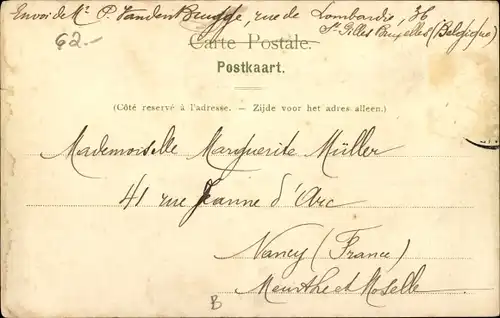 Envoi de Mr P. Vanden Brugge, rue de Lombardie, 36
St Gilles Bruxelles (Belgique)
62.-
Carte Postale.
Postkaart.
(Côté reservé à l'adresse. – Zijde voor het adres alleen.)
Mademoiselle Marguerite Müller
41 rue Jeanne d'Arc
Nancy (France)
Meurthe et Moselle
B